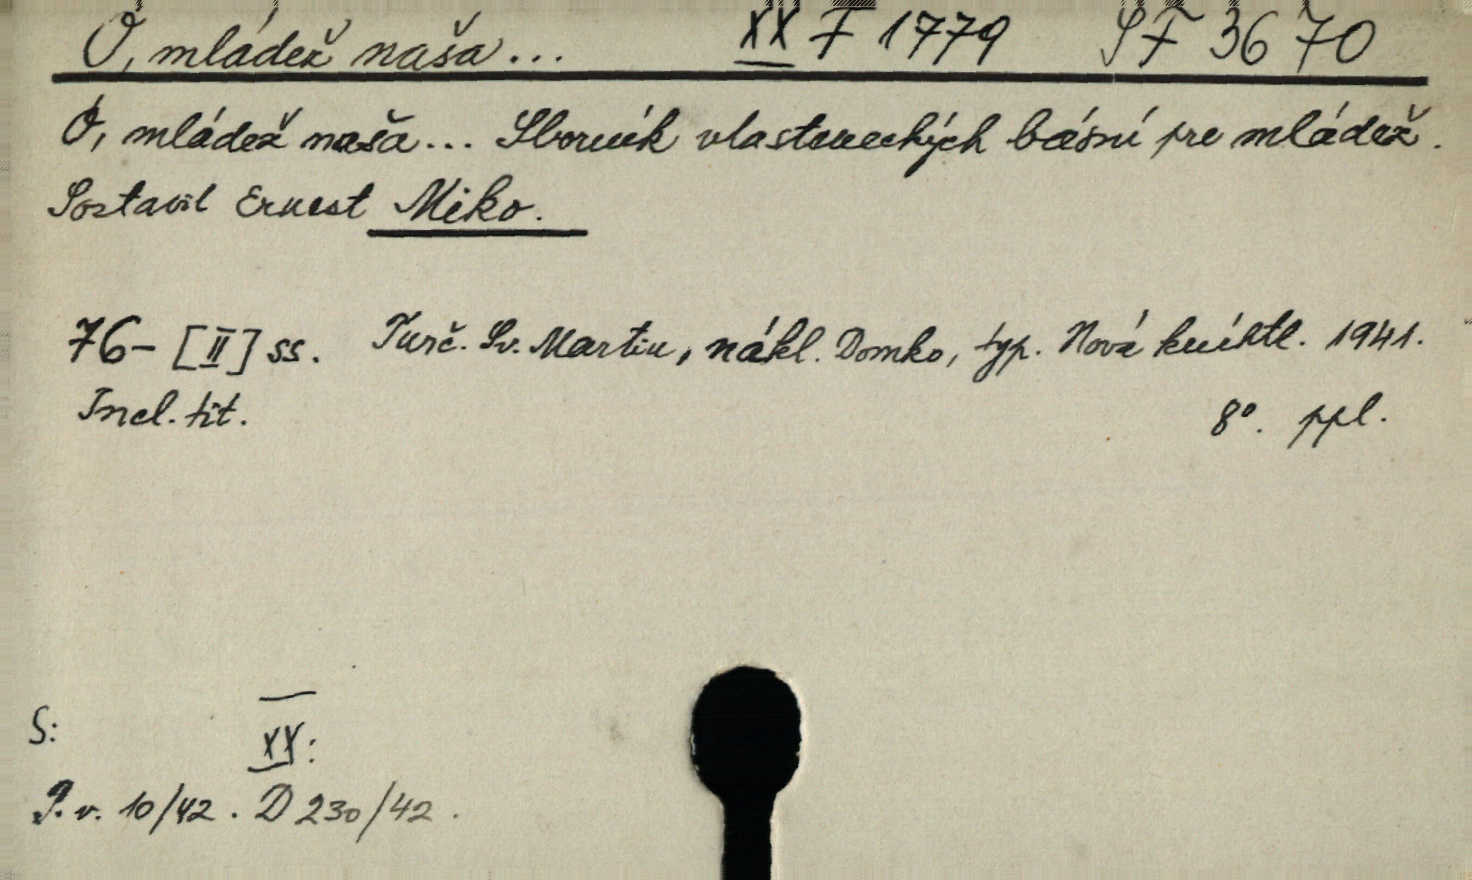 Ó, mládež naša... XX F 1779 SF 3670
Ó, mládež naša... Sborník vlasteneckých básní pre mládež.
Sostavil Ernest Miko.
76-[II] ss. Turč. Sv. Martin, nákl. Domko, typ. Nová kníhtl. 1941.
Incl. tit. 8°. ppl.
S: XX:
P. v. 10/42. D 230/42.